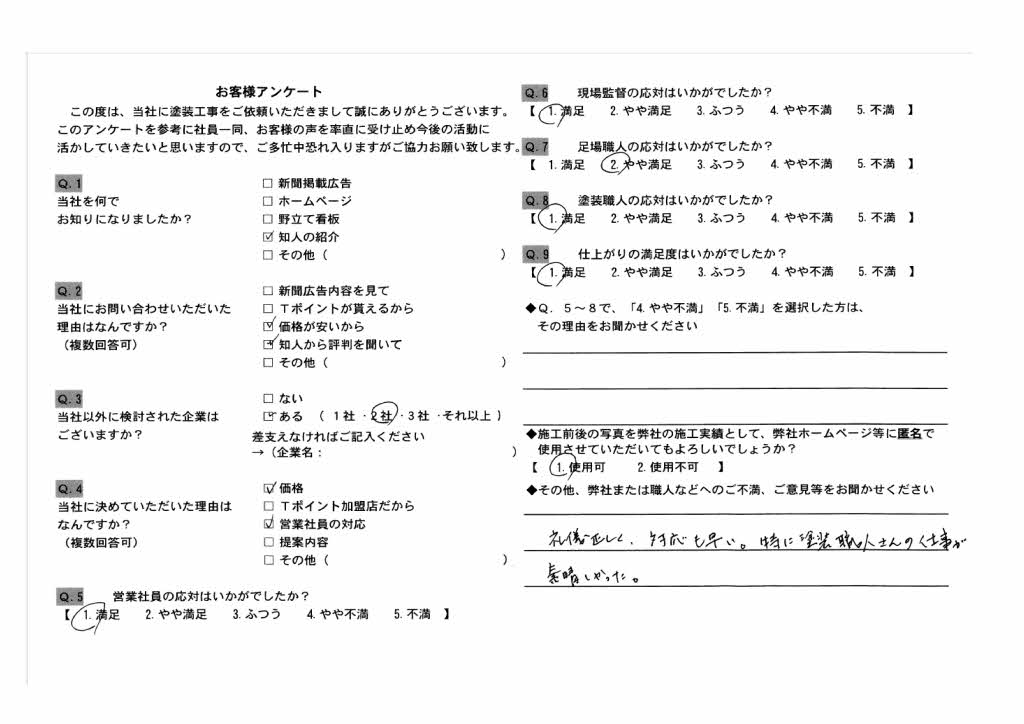 お客様アンケート
この度は、当社に塗装工事をご依頼いただきまして誠にありがとうございます。
このアンケートを参考に社員一同、お客様の声を率直に受け止め今後の活動に
活かしていきたいと思いますので、ご多忙中恐れ入りますがご協力お願い致します。
Q.1
当社を何で
お知りになりましたか？
□ 新聞掲載広告
□ ホームページ
□ 野立て看板
☑ 知人の紹介
□ その他（ ）
Q.2
当社にお問い合わせいただいた
理由はなんですか？
（複数回答可）
□ 新聞広告内容を見て
□ Ｔポイントが貰えるから
☑ 価格が安いから
☑ 知人から評判を聞いて
□ その他（ ）
Q.3
当社以外に検討された企業は
ございますか？
□ ない
☑ ある （ １社 ・２社・３社 ・それ以上 ）
差支えなければご記入ください
→（企業名： ）
Q.4
当社に決めていただいた理由は
なんですか？
（複数回答可）
☑ 価格
□ Ｔポイント加盟店だから
☑ 営業社員の対応
□ 提案内容
□ その他（ ）
Q.5 営業社員の応対はいかがでしたか？
【 1.満足 2.やや満足 3.ふつう 4.やや不満 5.不満 】
Q.6 現場監督の応対はいかがでしたか？
【 1.満足 2.やや満足 3.ふつう 4.やや不満 5.不満 】
Q.7 足場職人の応対はいかがでしたか？
【 1.満足 2.やや満足 3.ふつう 4.やや不満 5.不満 】
Q.8 塗装職人の応対はいかがでしたか？
【 1.満足 2.やや満足 3.ふつう 4.やや不満 5.不満 】
Q.9 仕上がりの満足度はいかがでしたか？
【 1.満足 2.やや満足 3.ふつう 4.やや不満 5.不満 】
◆Ｑ．５～８で、「4.やや不満」「5.不満」を選択した方は、
その理由をお聞かせください
◆施工前後の写真を弊社の施工実績として、弊社ホームページ等に匿名で
使用させていただいてもよろしいでしょうか？
【 1.使用可 2.使用不可 】
◆その他、弊社または職人などへのご不満、ご意見等をお聞かせください
礼儀正しく、対応も早い。特に塗装職人さんの仕事が
素晴しかった。